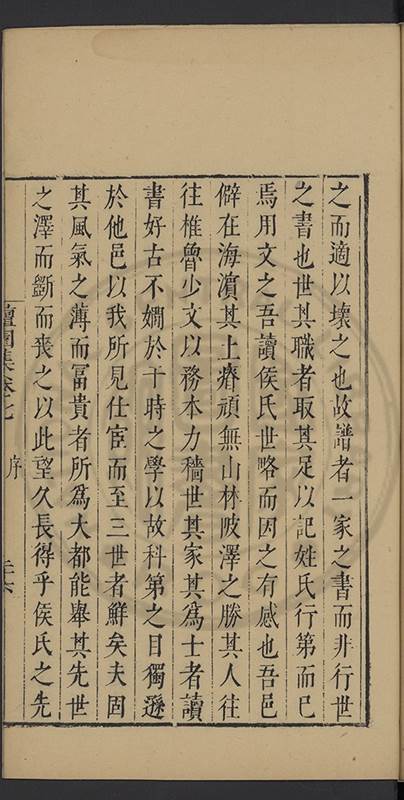 之而適以壞之也故譜者一家之書而非行世
之書也世其職者取其足以記姓氏行第而已
焉用文之吾讀侯氏世略而因之有感也吾邑
僻在海濵其上瘠頑無山林陂澤之勝其人往
往椎魯少文以務本力穡世其家其為士者讀
書好古不嫺於干時之學以故科第之目獨遜
於他邑以我所見仕宦而至三世者鮮矣夫固
其風氣之薄而冨貴者所為大都能舉其先世
之澤而斵而喪之以此望久長得乎侯氏之先
集卷之七 序